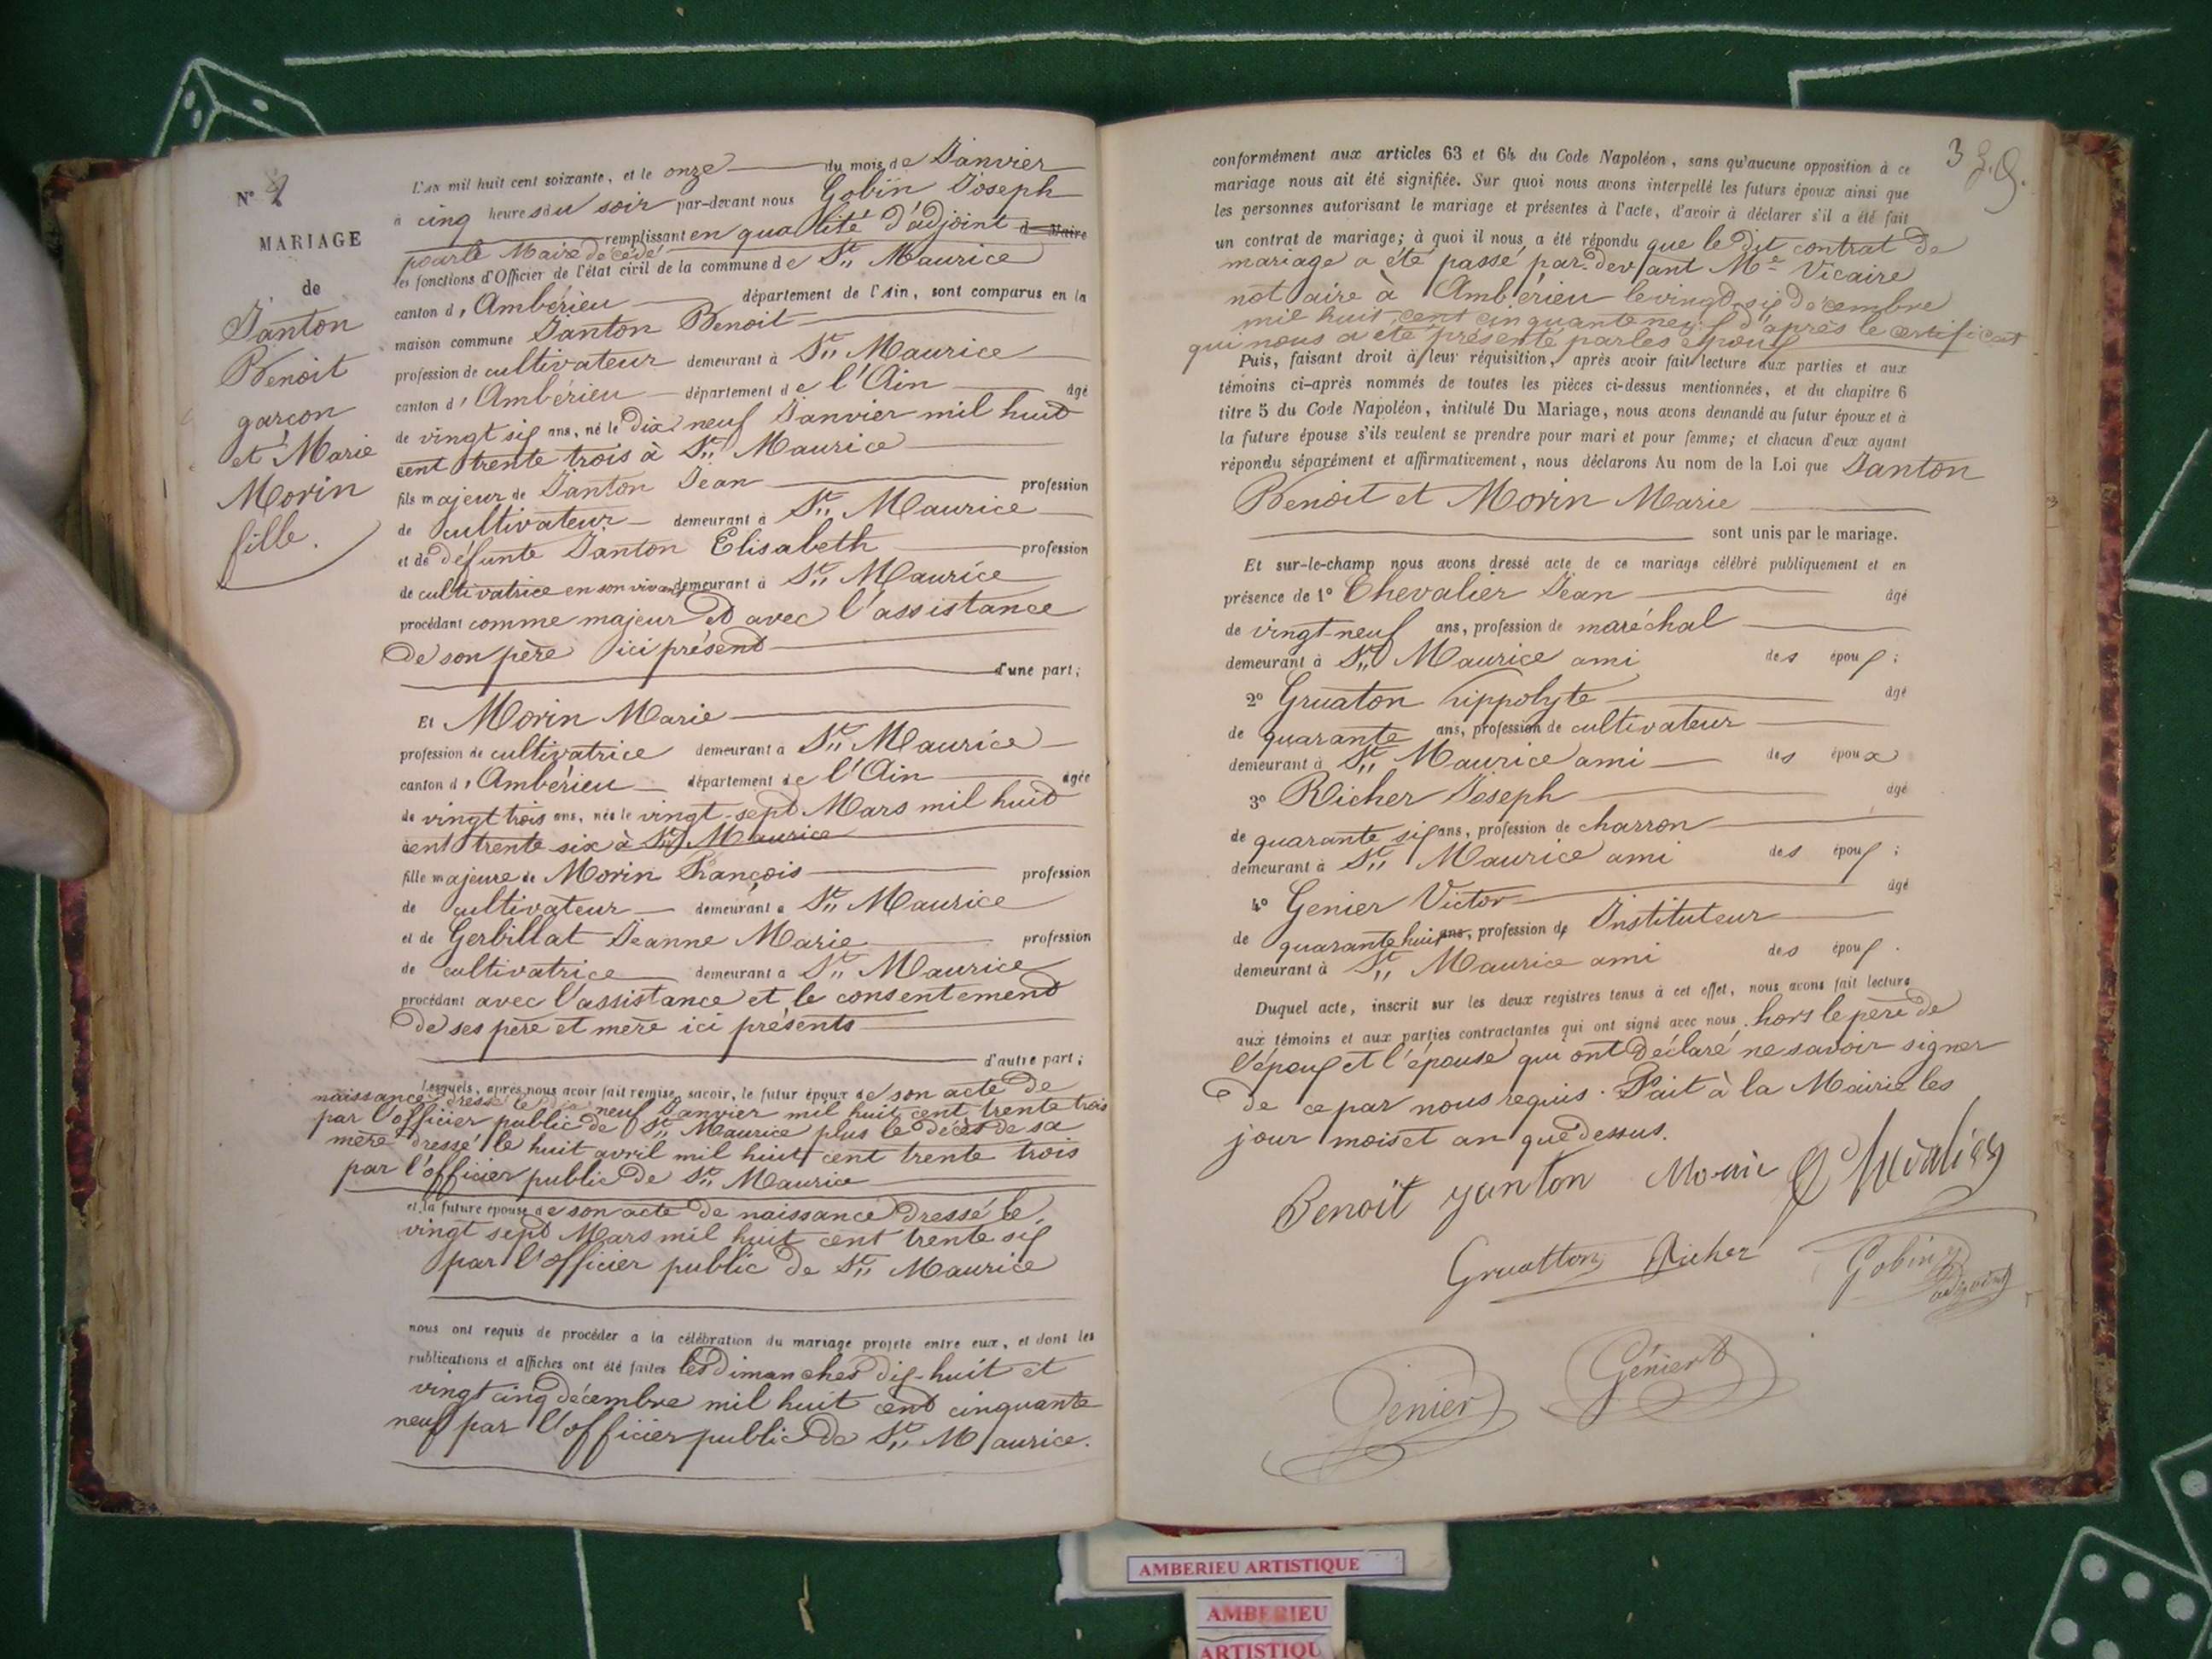 N° 2
MARIAGE
de
Janton
Benoit
garçon
et Marie
Morin
fille.
L'an mil huit cent soixante, et le onze du mois de Janvier
à cinq heures du soir par-devant nous Gobin Joseph
remplissant en qualité d'adjoint d Maire
pour le Maire décédé
les fonctions d'Officier de l'état civil de la commune de St Maurice
canton d'Ambérieu département de l'Ain, sont comparus en la
maison commune Janton Benoit
profession de cultivateur demeurant à St Maurice
canton d'Ambérieu département de l'Ain âgé
de vingt six ans, né le dix neuf Janvier mil huit
cent trente trois à St Maurice
fils majeur de Janton Jean profession
de cultivateur demeurant à St Maurice
et de défunte Janton Elisabeth profession
de cultivatrice en son vivant demeurant à St Maurice
procédant comme majeur et avec l'assistance
de son père ici présent
d'une part;
Et Morin Marie
profession de cultivatrice demeurant à St Maurice
canton d'Ambérieu département de l'Ain âgée
de vingt trois ans, née le vingt-sept Mars mil huit
cent trente six à St Maurice
fille majeure de Morin François profession
de cultivateur demeurant à St Maurice
et de Gerbillat Jeanne Marie profession
de cultivatrice demeurant à St Maurice
procédant avec l'assistance et le consentement
de ses père et mère ici présents
d'autre part;
Lesquels, après nous avoir fait remise, savoir, le futur époux de son acte de
naissance dressé le dix neuf Janvier mil huit cent trente trois
par l'officier public de St Maurice plus le décès de sa
mère dressé le huit avril mil huit cent trente trois
par l'officier public de St Maurice
et la future épouse de son acte de naissance dressé le
vingt sept Mars mil huit cent trente six
par l'officier public de St Maurice
nous ont requis de procéder à la célébration du mariage projeté entre eux, et dont les
publications et affiches ont été faites les dimanches dix-huit et
vingt cinq décembre mil huit cent cinquante
neuf par l'officier public de St Maurice.
3
conformément aux articles 63 et 64 du Code Napoléon, sans qu'aucune opposition à ce
mariage nous ait été signifiée. Sur quoi nous avons interpellé les futurs époux ainsi que
les personnes autorisant le mariage et présentes à l'acte, d'avoir à déclarer s'il a été fait
un contrat de mariage; à quoi il nous a été répondu que le dit contrat de
mariage a été passé par-devant Me Vicaire
notaire à Ambérieu le vingt-six décembre
mil huit cent cinquante neuf d'après le certificat
qui nous a été présenté par les époux
Puis, faisant droit à leur réquisition, après avoir fait lecture aux parties et aux
témoins ci-après nommés de toutes les pièces ci-dessus mentionnées, et du chapitre 6
titre 5 du Code Napoléon, intitulé Du Mariage, nous avons demandé au futur époux et à
la future épouse s'ils veulent se prendre pour mari et pour femme; et chacun d'eux ayant
répondu séparément et affirmativement, nous déclarons Au nom de la Loi que Janton
Benoit et Morin Marie
sont unis par le mariage.
Et sur-le-champ nous avons dressé acte de ce mariage célébré publiquement et en
présence de 1° Chevalier Jean âgé
de vingt-neuf ans, profession de maréchal
demeurant à St Maurice ami des époux;
2° Gruaton hippolyte âgé
de quarante ans, profession de cultivateur
demeurant à St Maurice ami des époux
3° Richer Joseph âgé
de quarante six ans, profession de charron
demeurant à St Maurice ami des époux;
4° Genier Victor âgé
de quarante huit ans, profession de Instituteur
demeurant à St Maurice ami des époux.
Duquel acte, inscrit sur les deux registres tenus à cet effet, nous avons fait lecture
aux témoins et aux parties contractantes qui ont signé avec nous hors le père de
l'époux et l'épouse qui ont déclaré ne savoir signer
de ce par nous requis. Fait à la Mairie les
jour mois et an que dessus.
Benoit janton Morin Chevalier
Gruatton Richer Gobin
adjoint
Genier Génier
AMBERIEU ARTISTIQUE
AMBERIEU
ARTISTIQU